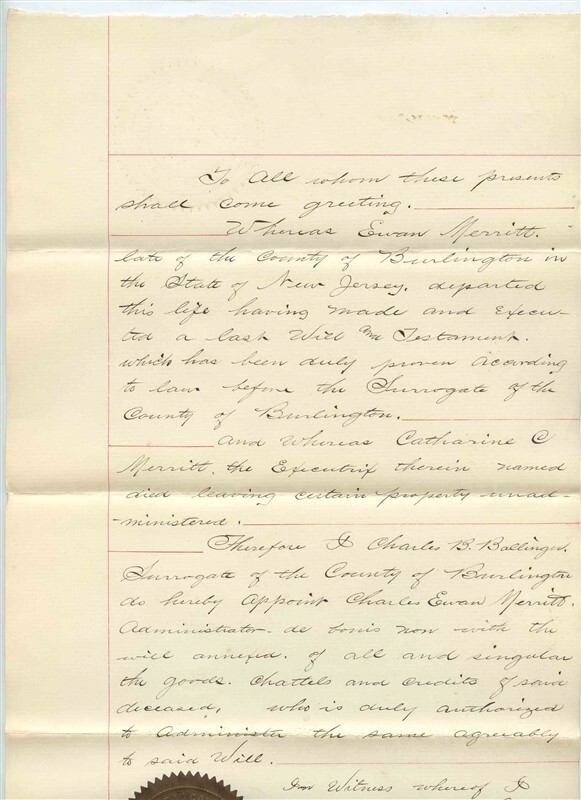 To All whom these presents
shall come greeting.
Whereas Ewan Merritt.
late of the County of Burlington in
the State of New Jersey. departed
this life having made and Execu-
ted a last Will and Testament.
which has been duly proven according
to law before the Surrogate of the
County of Burlington.
And Whereas Catharine C
Merritt. the Executrix therein named
died leaving certain property unad-
-ministered.
Therefore I Charles B. Ballinger.
Surrogate of the County of Burlington
do hereby Appoint Charles Ewan Merritt.
Administrator de bonis non with the
will annexed. of all and singular
the goods. Chattels and credits of said
deceased, who is duly authorized
to Administer the same agreeably
to said Will.
In Witness whereof I